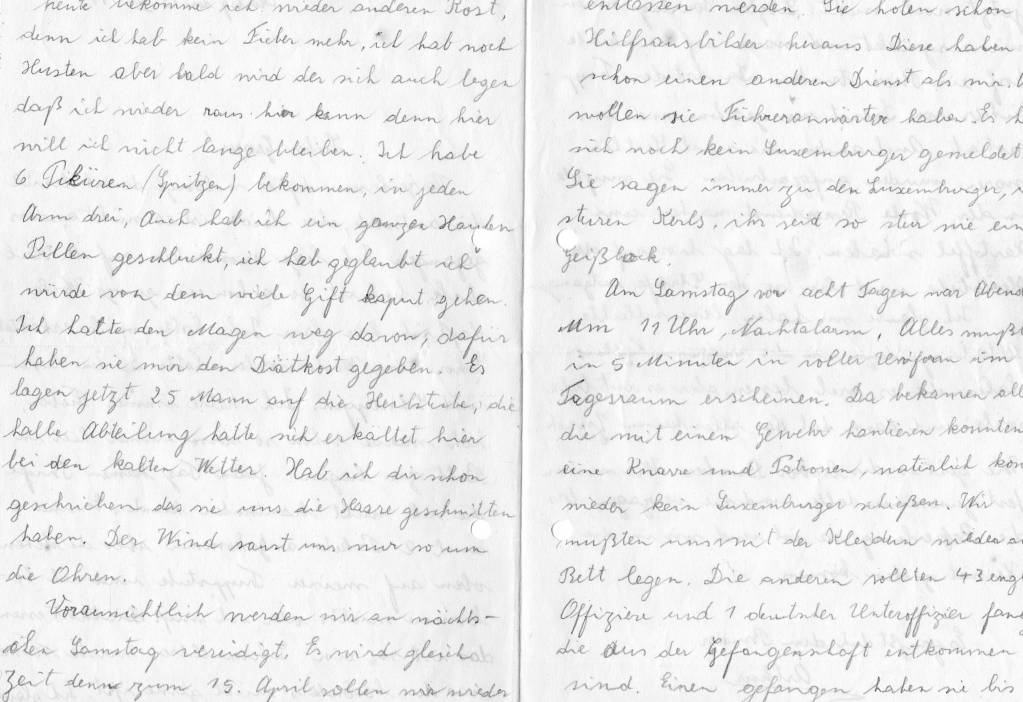 heute bekomme ich wieder anderen Kost,
denn ich hab kein Fieber mehr, ich hab noch
Husten aber bald wird der sich auch legen
daß ich wieder raus hier kann denn hier
will ich nicht lange bleiben. Ich habe
6 Piküren (Spritzen) bekommen, in jeden
Arm drei, Auch hab ich ein ganzer Haufen
Pillen geschluckt, ich hab geglaubt ich
würde von dem viele Gift kaput gehen.
Ich hatte den Magen weg davon, dafür
haben sie mir den Diätkost gegeben. Es
lagen jetzt 25 Mann auf die Heilstube, die
halbe Abteilung hatte sich erkältet hier
bei den kalten Wetter. Hab ich dir schon
geschrieben das sie uns die Haare geschnitten
haben. Der Wind saust uns nur so um
die Ohren.
Voraussichtlich werden wir an nächts-
sten Samstag vereidigt. Es wird gleich
Zeit denn zum 15. April sollen wir wieder
entlassen werden. Sie holen schon
Hilfsausbilder heraus Diese haben
schon einen anderen Dienst als wir.
wollen sie Führeranwärter haben. Es
sich noch kein Luxemburger gemeldet
Sie sagen immer zu den Luxemburger,
sturen Kerls, ihr seid so stur wie ein
Geißbock.
Am Samstag vor acht Tagen war Abend
Um 11 Uhr, Nachtalarm, Alles mußt
in 5 Minuten in voller Uniform im
Tagesraum erscheinen. Da bekamen all
die mit einen Gewehr hantieren konnten
eine Knarre und Patronen, natürlich kon
wieder kein Luxemburger schießen. Wir
mußten uns mit der Kleidern wieder
Bett legen. Die anderen sollten 43 engl
Offiziere und 1 deutscher Unteroffizier fan
die aus der Gefangenschaft entkommen
sind. Einen gefangen haben sie bis